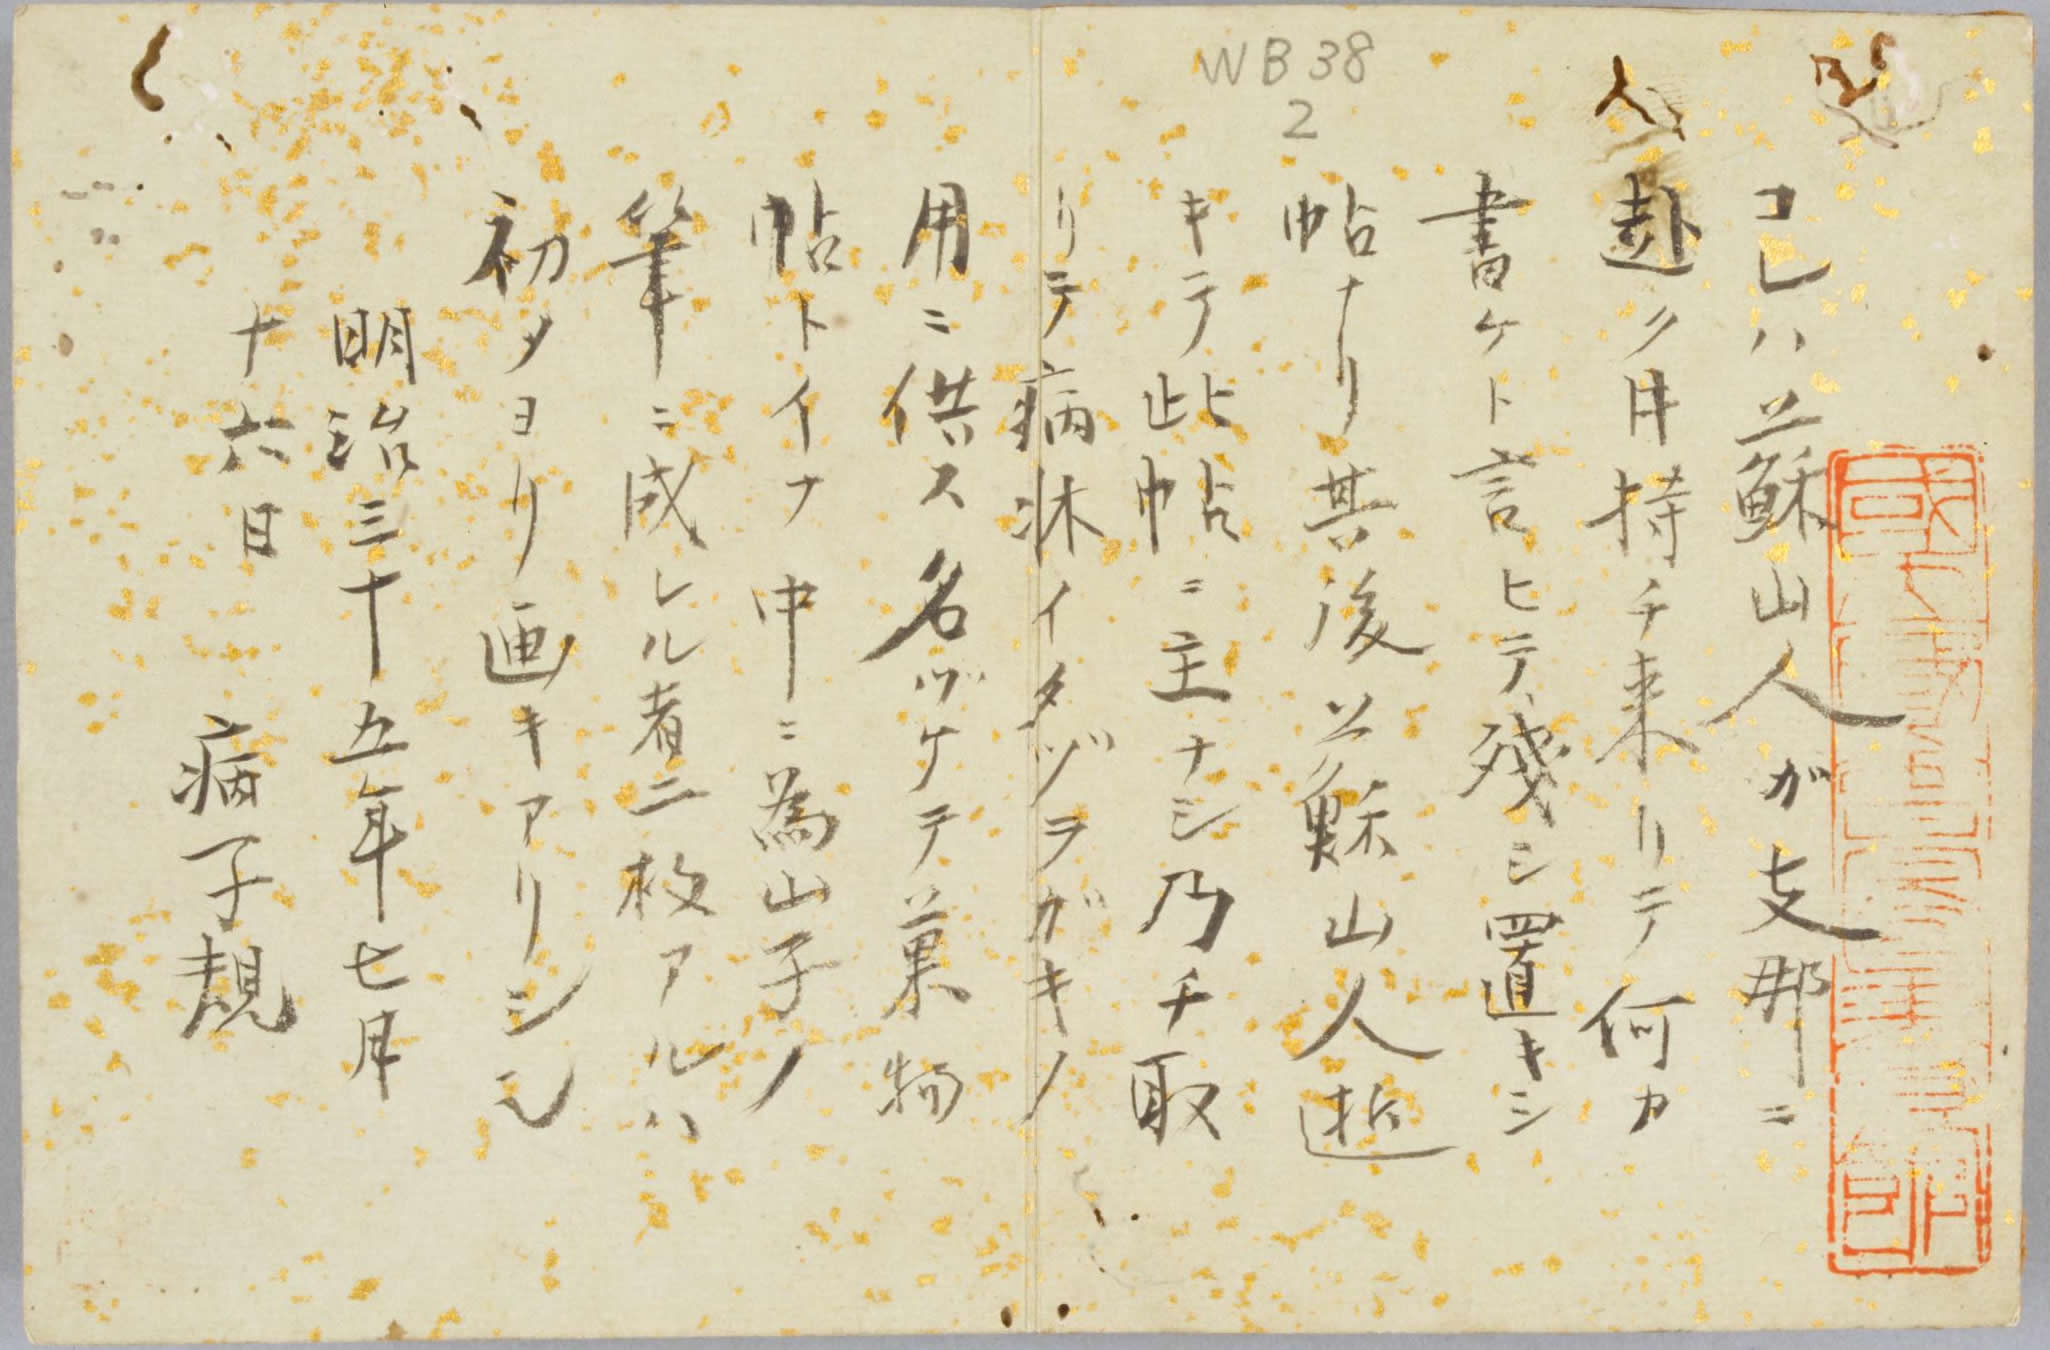 WB38
2
コレハ蘇山人ガ支那ニ
赴ク時持チ来リテ何カ
書ケト言ヒテ残シ置キシ
帖ナリ其後蘇山人逝
キテ此帖ニ主ナシ乃チ取
リテ病牀イタヅラガキノ
用ニ供ス名ヅケテ菓物
帖トイフ中ニ為山子ノ
筆ニ成レル者二枚アルハ
初メヨリ画キアリシ也
明治三十五年七月
十六日
病子規